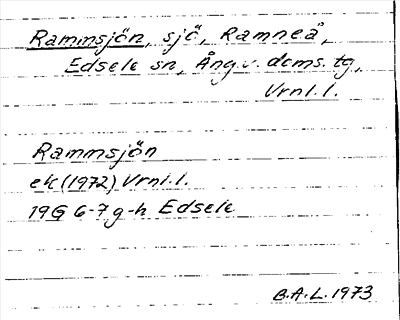 Rammsjön, sjö, Ramneå,
Edsele sn, Ång.v. doms. tg,
Vrnl.l.
Rammsjön
ek (1972) Vrnl.l.
19G 6-7 g-h Edsele
B.A.L. 1973